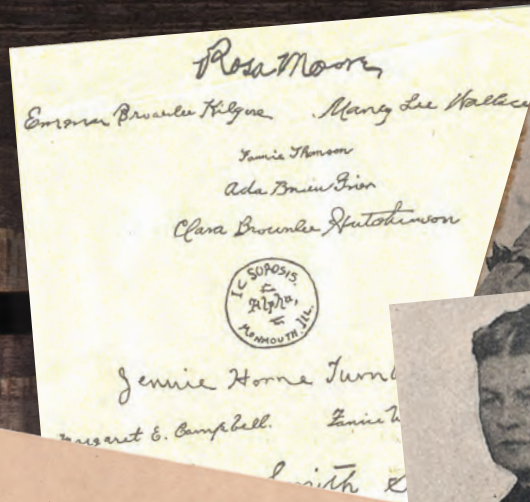 Rosa Moore
Emma Brownlee Kilgore Nancy Lee Wallace
Fannie Thomson
Ada Bruen Grier
Clara Brownlee Hutchinson
I.C SOROSIS.
Alpha,
MONMOUTH, ILL.
Jennie Horne Turn
Margaret E. Campbell. Fannie W
Smith